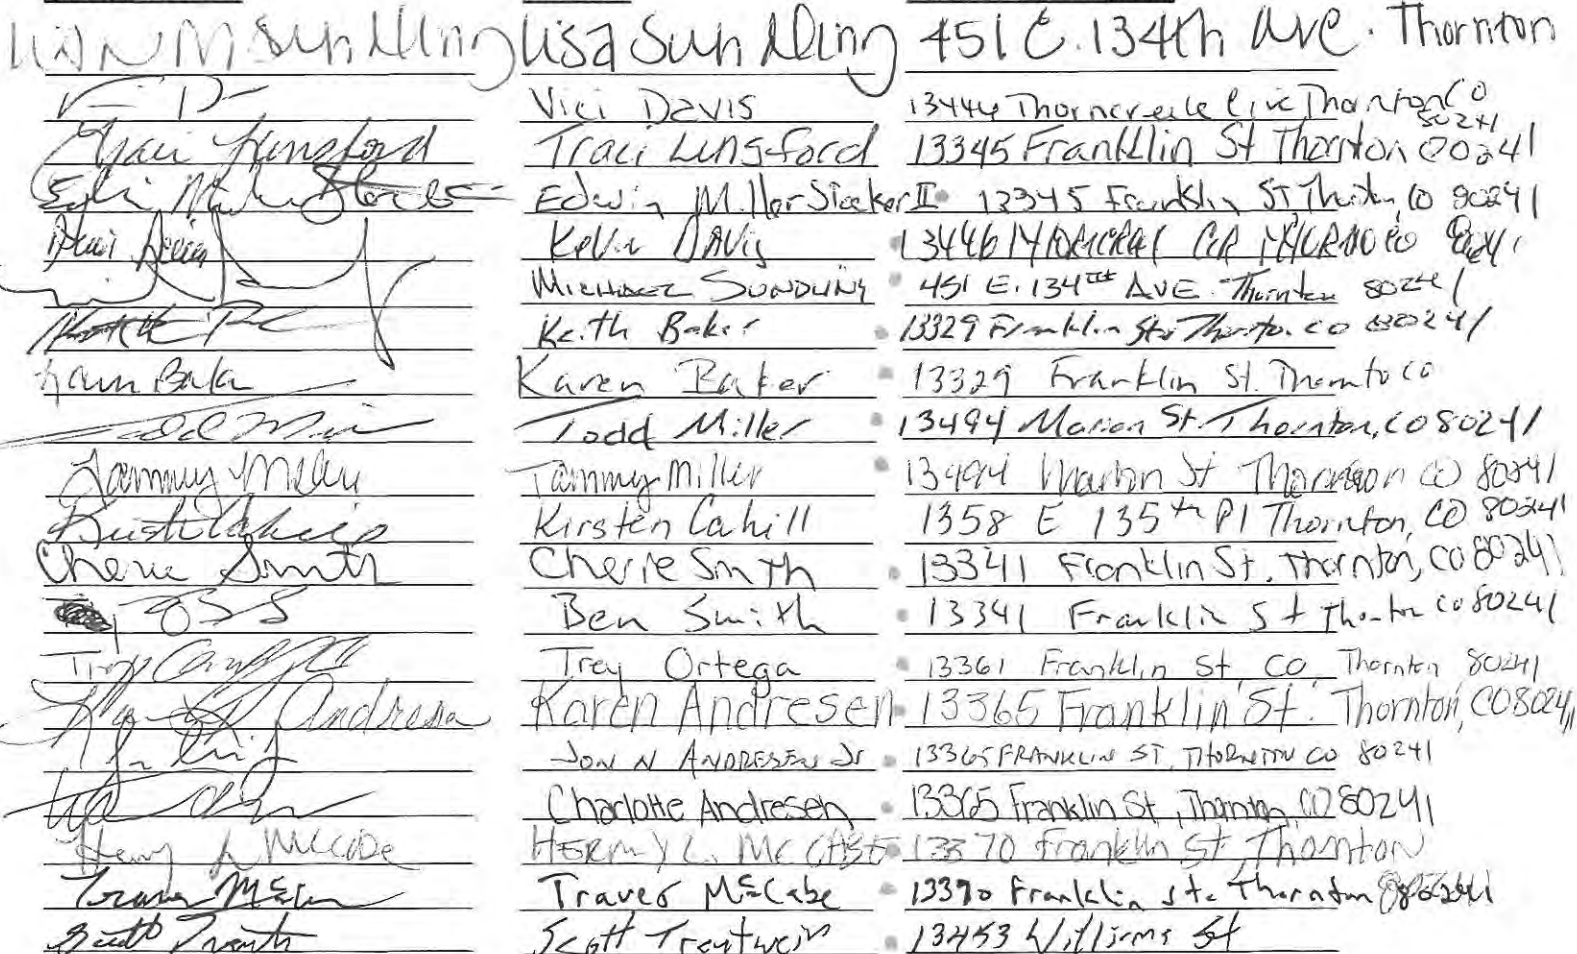 Lisa M Sundling Lisa Sundling 451 E. 134th Ave. Thornton
Vici Davis 13446 Thorncreek Thornton CO 80241
Traci Lunsford Traci Lunsford 13345 Franklin St Thornton 80241
Edwin Miller Sloeker II 13345 Franklin St Thornton, CO 80241
Davis 13446 CIR CO 80241
Michael Sundling 451 E. 134th AVE. Thornton 80241
Keith Baker 13329 Franklin St. Thornton CO 80241
Karen Baker Karen Baker 13329 Franklin St. Thornton CO
Todd Miller Todd Miller 13494 Marion St. Thornton, CO 80241
Tammy Miller Tammy Miller 13494 Marion St Thornton CO 80241
Kirsten Cahill 1358 E 135th Pl Thornton, CO 80241
Cherie Smith Cherie Smith 13341 Franklin St, Thornton, CO 80241
Ben Smith 13341 Franklin St Thornton CO 80241
Trey Ortega 13361 Franklin St, CO, Thornton 80241
Andresen Karen Andresen 13365 Franklin St. Thornton, CO 80241
JON N ANDRESEN Jr 13365 FRANKLIN ST, THORNTON CO 80241
Charlotte Andresen 13365 Franklin St, Thornton, CO 80241
Henry L McCabe HENRY L. MCCABE 13370 Franklin St, Thornton
Traver McCabe 13370 Franklin St. Thornton 80241
Scott Trautwein 13453 Williams St